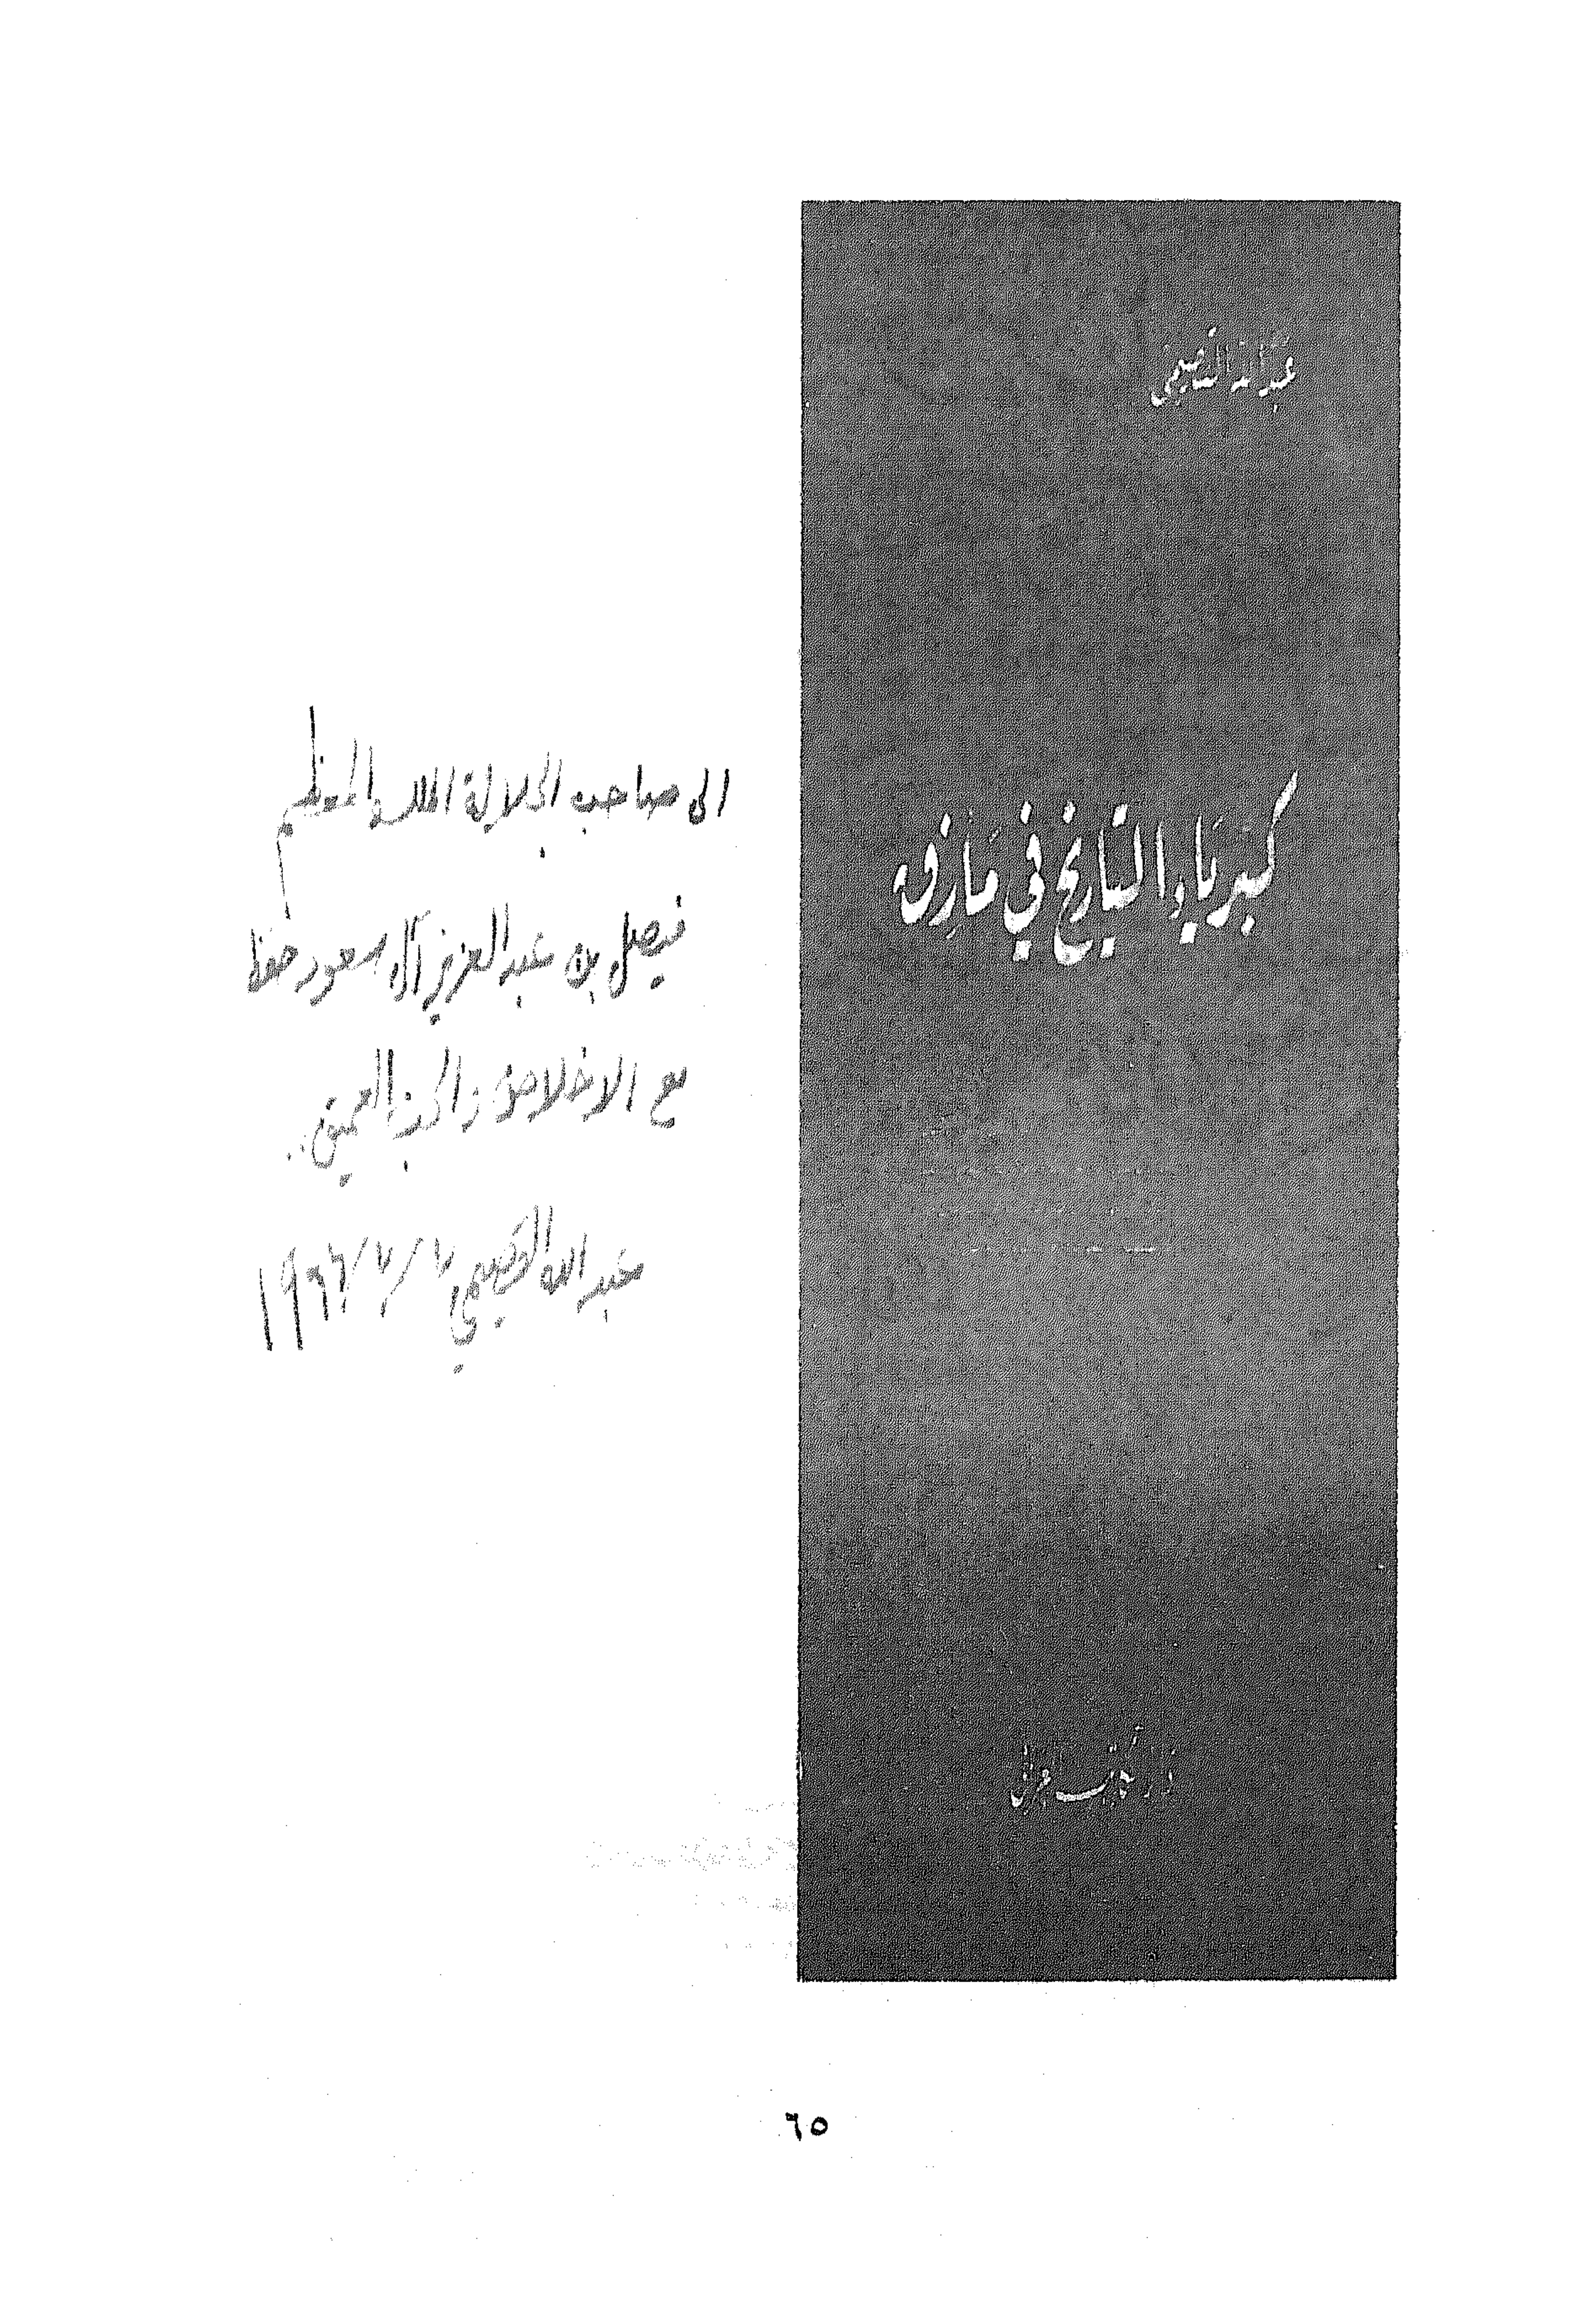 عبد الله القصيمي
كبرياء التاريخ في مأزق
دار الكاتب العربي
الى صاحب الجلالة الملك المعظم
فيصل بن عبد العزيز آل سعود حفظ
مع الاخلاص و الحب العميق..
عبد الله القصيمي ٧/٧/١٩٦٦
٦٥